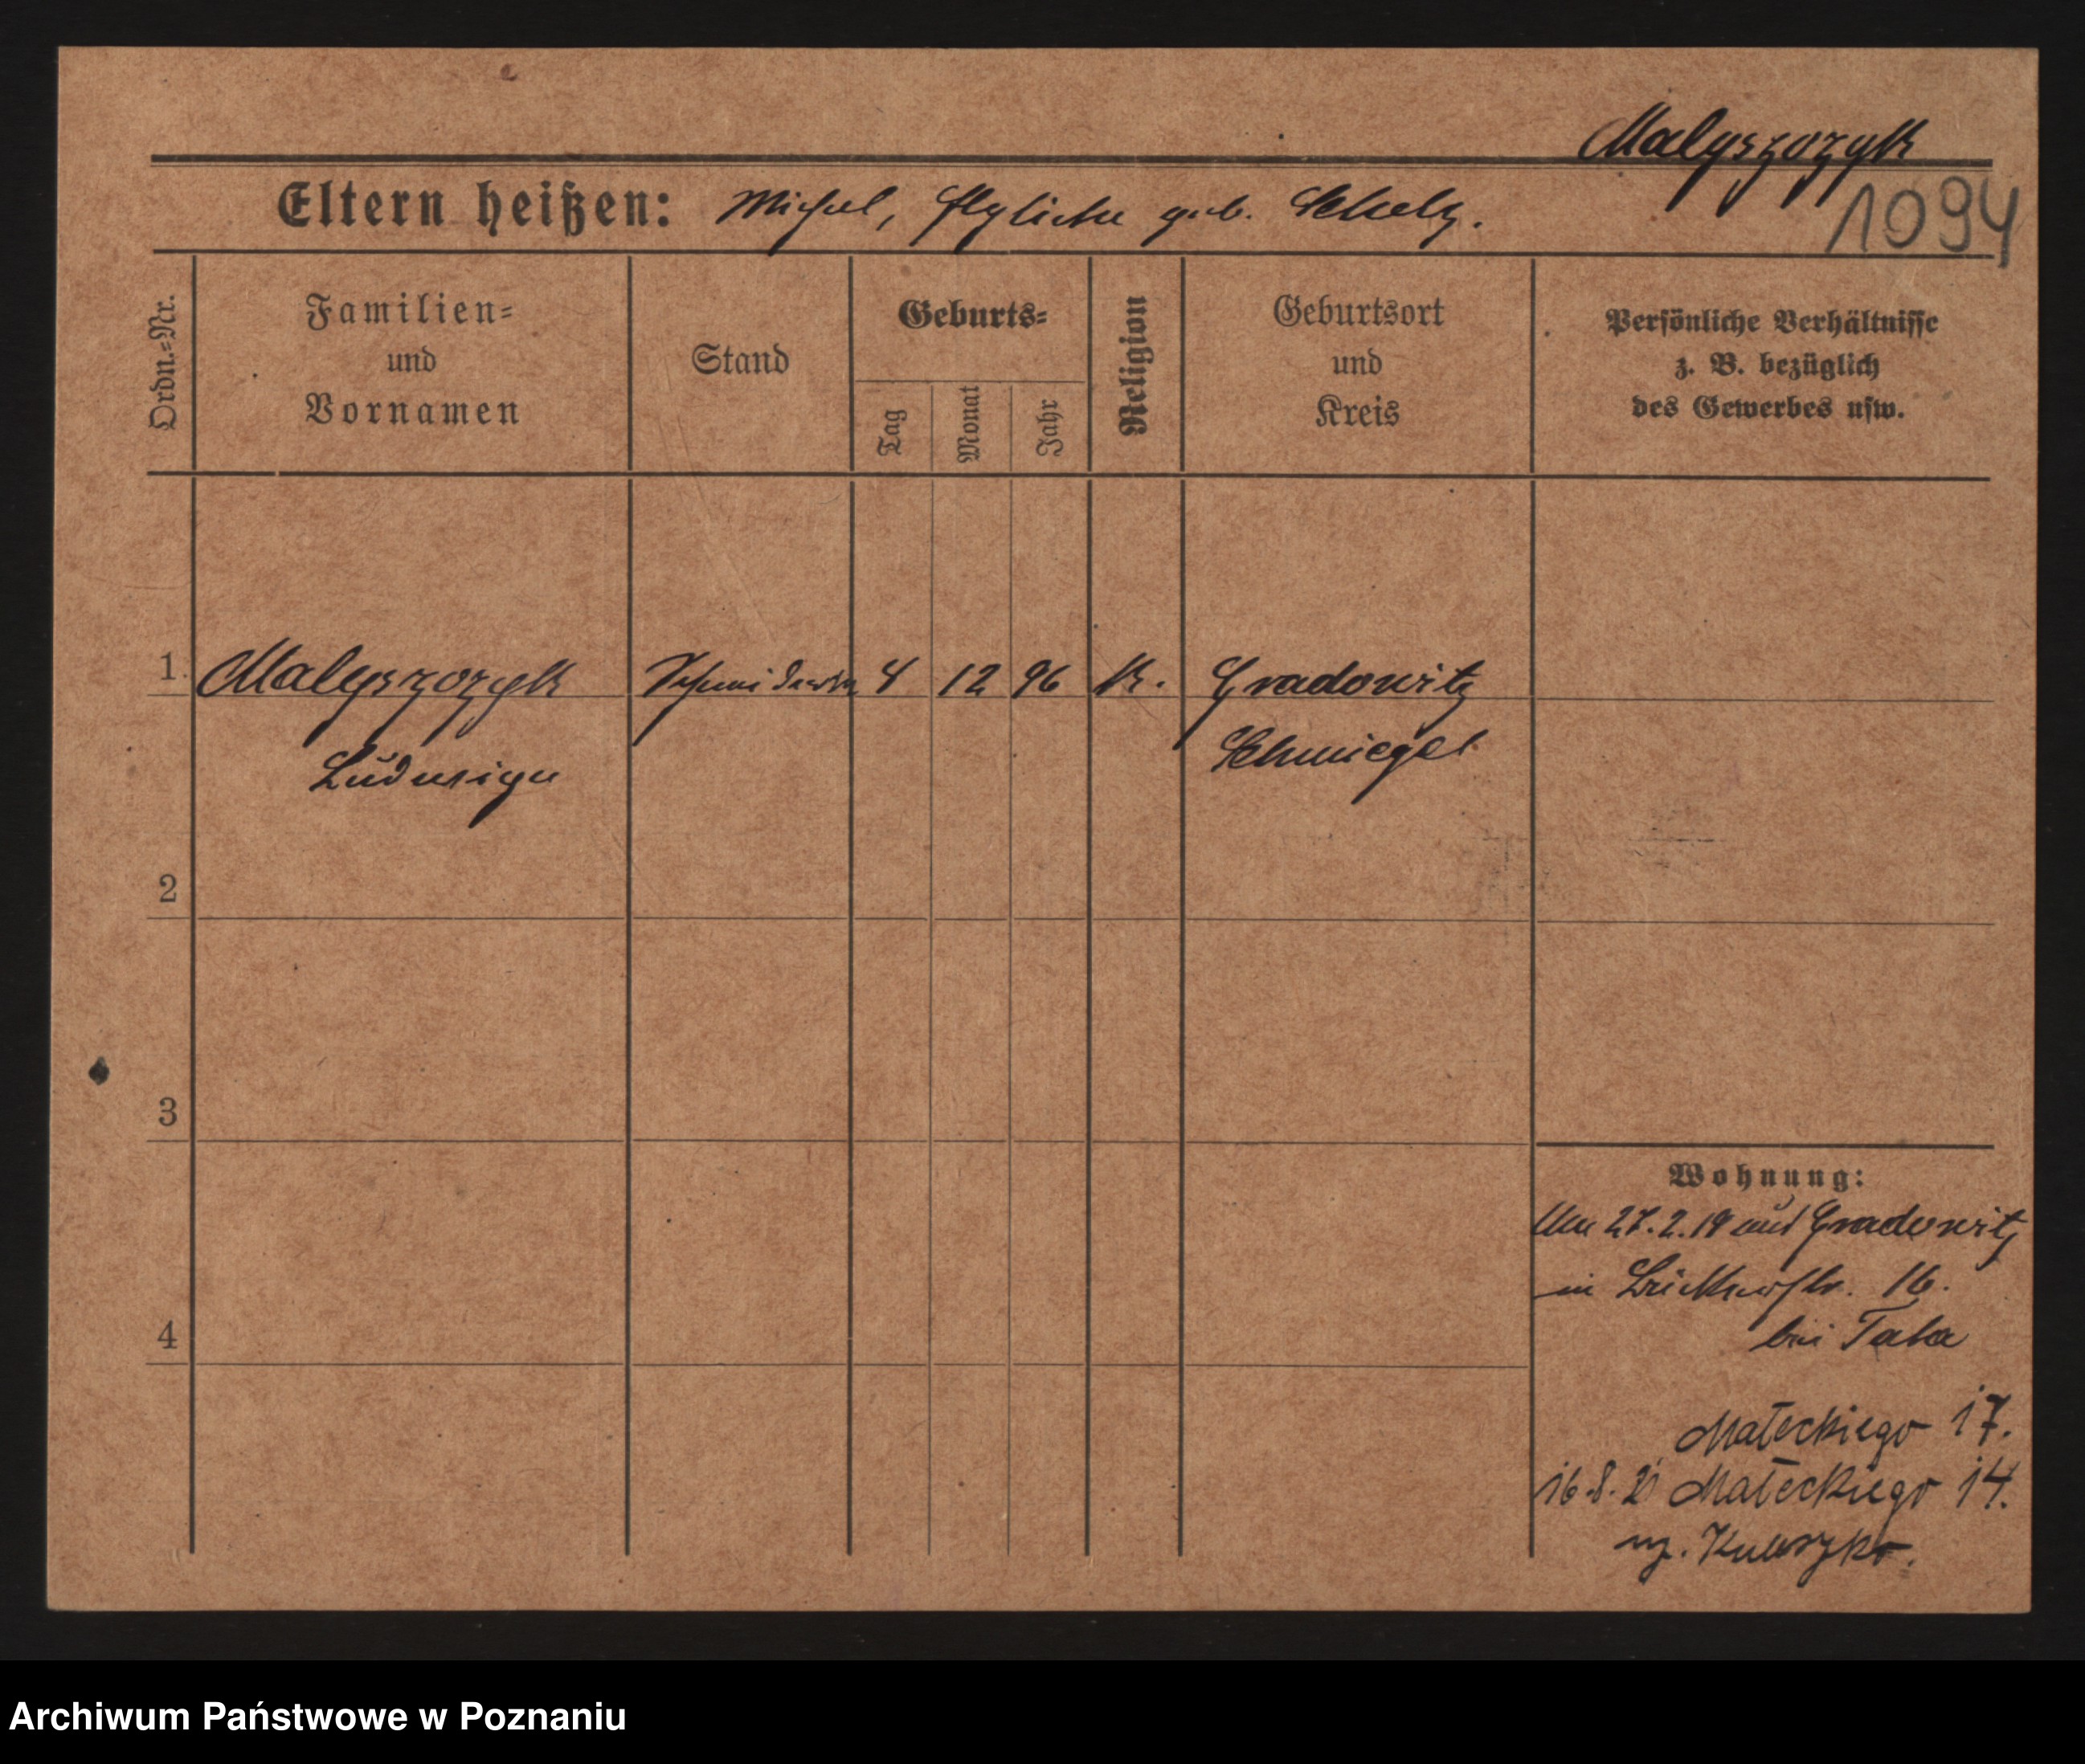 Malyszczyk
1094
Eltern heißen: Michael, geb. Scholz.
Ordn.=Nr.
Familien=
und
Vornamen
Stand
Geburts=
Tag
Monat
Jahr
Religion
Geburtsort
und
Kreis
Persönliche Verhältnisse
z. B. bezüglich
des Gewerbes usw.
1. Malyszczyk Schneiderin 4 12 96 K. Gradowitz
Ludwiga Schmiegel
2
3
4
Wohnung:
27.2.19 aus Gradowitz
in 16.
bei
Małeckiego 17.
16.8.21 Małeckiego 14.
Archiwum Państwowe w Poznaniu